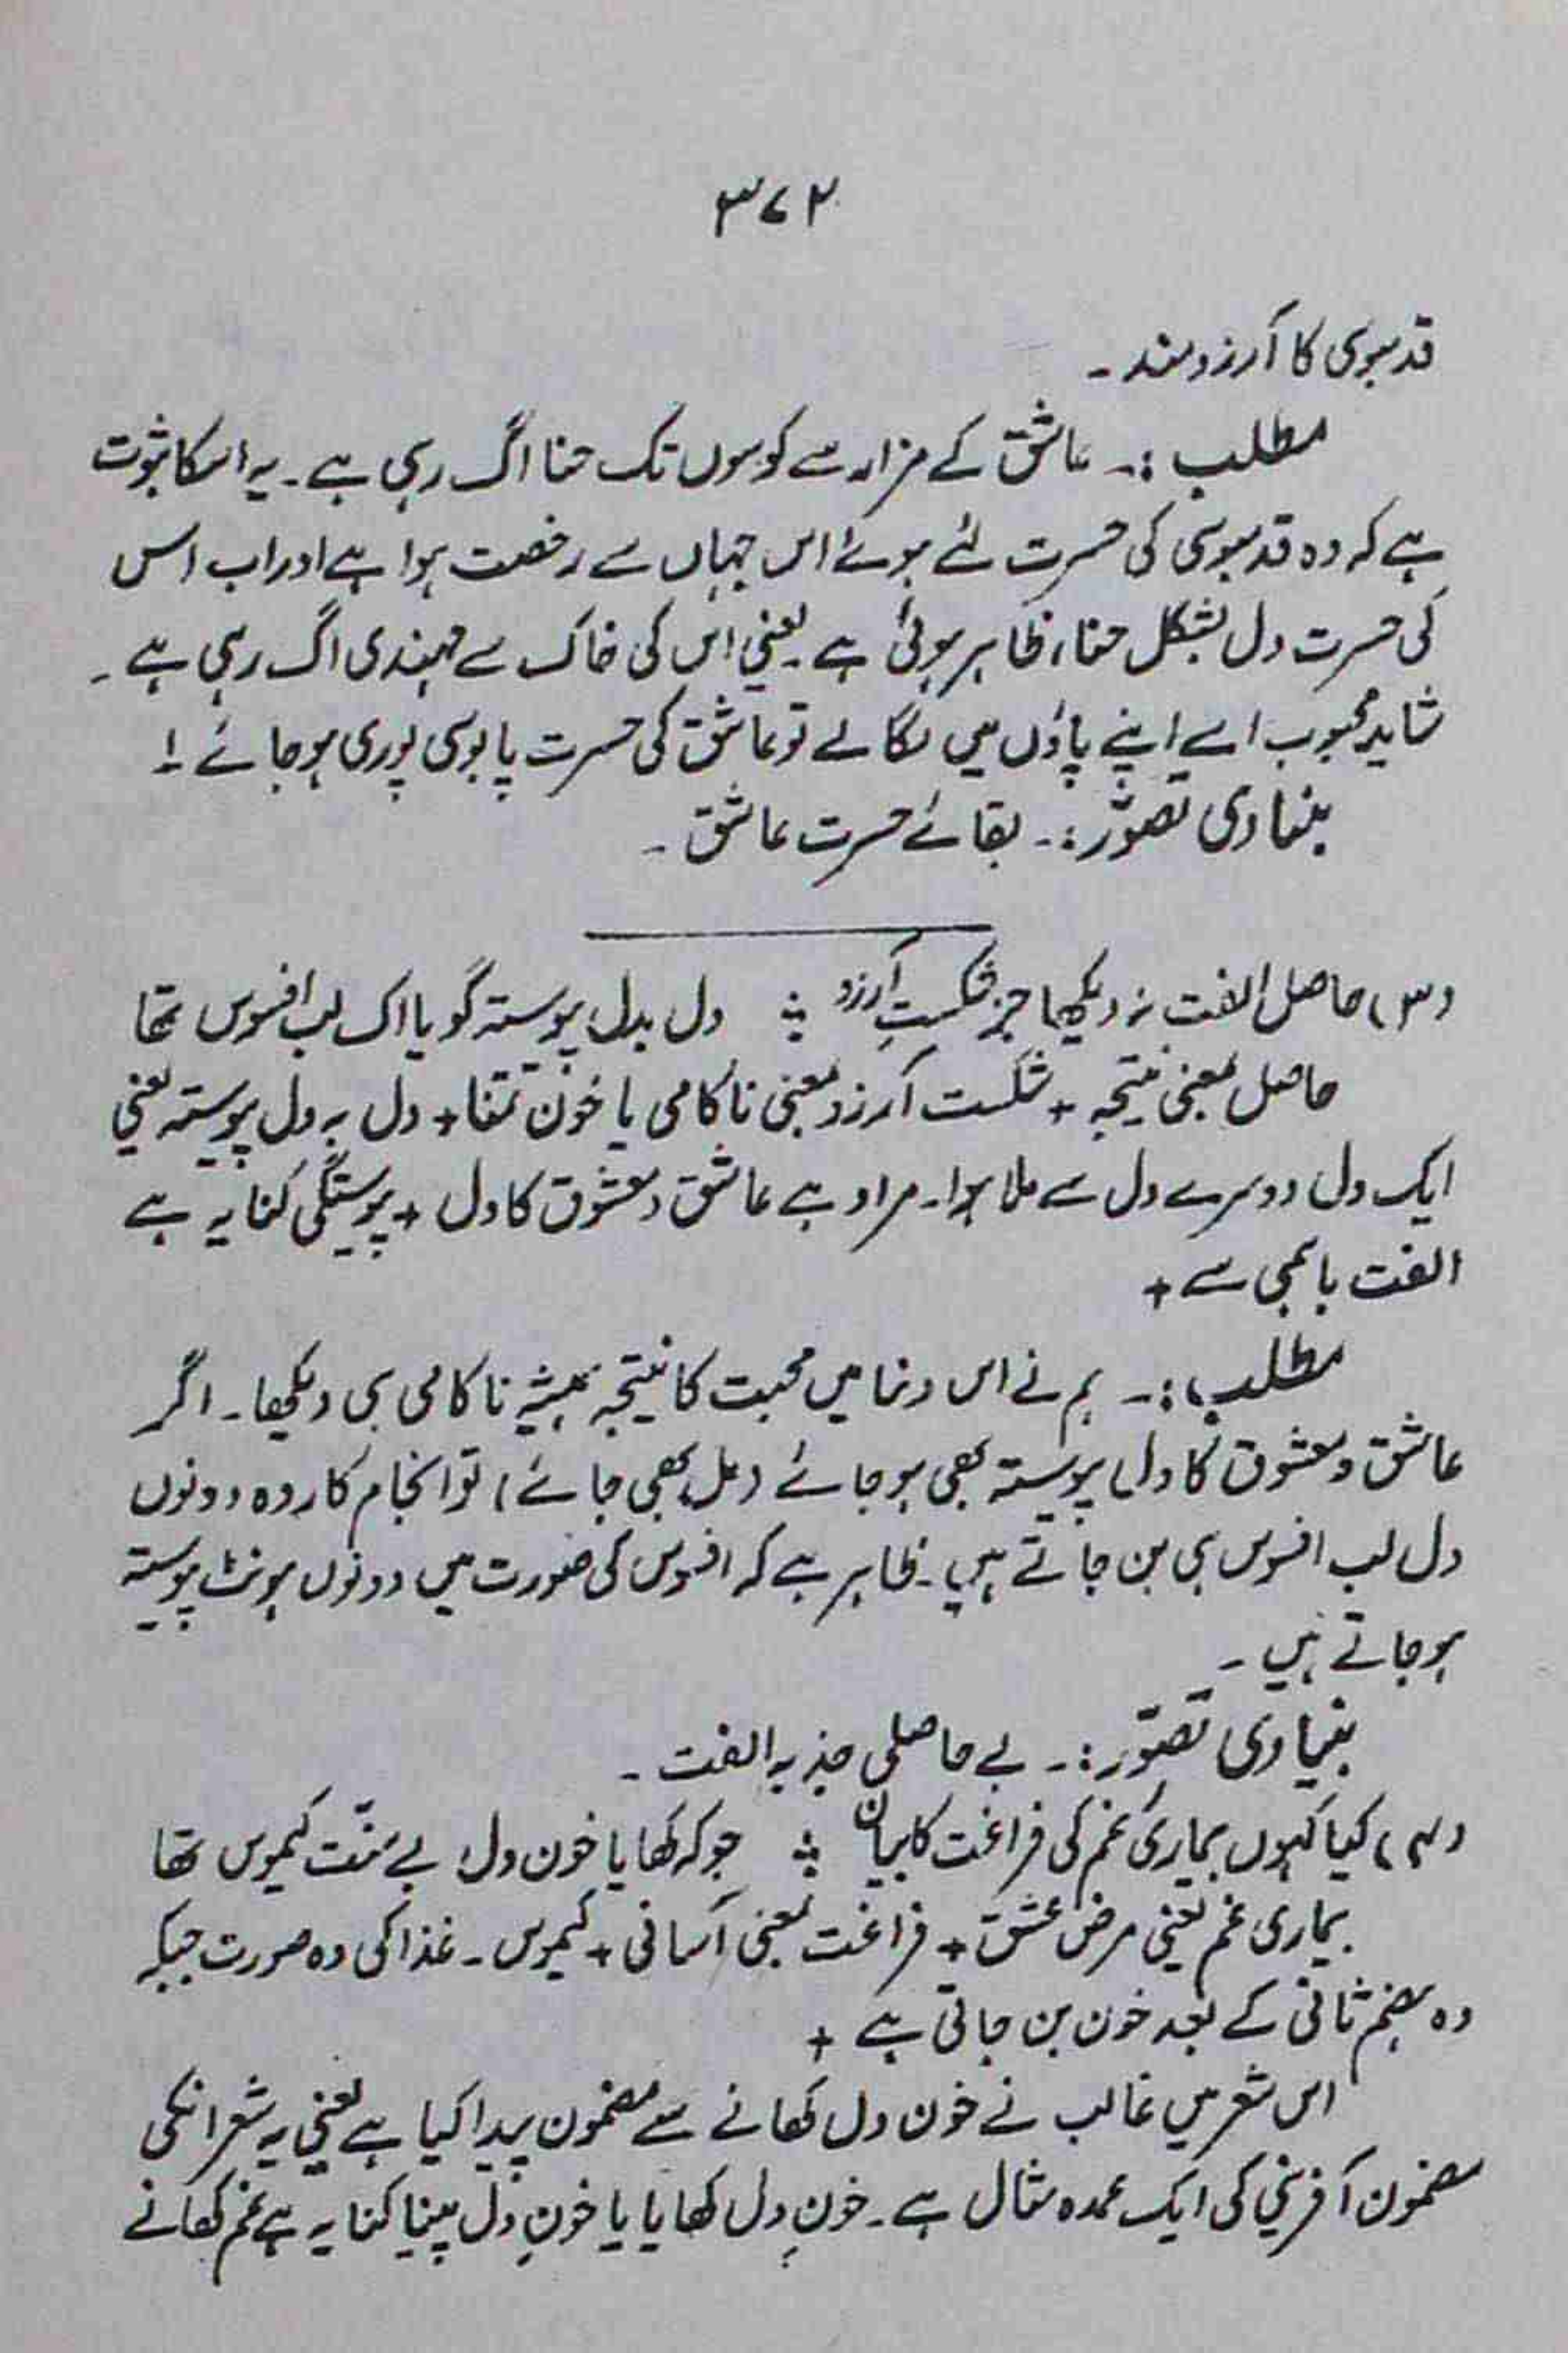 ۳۷۲
قدمبوسی کا آرزومند ۔
مطلب :۔ عاشق کے مزار سے کوسوں تک حنا اگ رہی ہے۔ یہ اسکا ثبوت
ہے کہ وہ قدمبوسی کی حسرت لئے ہوئے اس جہاں سے رخصت ہوا ہے اور اب اس
کی حسرت دل بشکل حنا، ظاہر ہوئی ہے یعنی اس کی خاک سے مہندی اگ رہی ہے ۔
شاید محبوب اسے اپنے پاؤں میں لگا لے تو عاشق کی حسرت پابوسی پوری ہو جائے !۔
بنیادی تصوّر :۔ بقائے حسرت عاشق ۔
(۳) حاصل الفت نہ دیکھا جز شکستِ آرزو ؞ دل بدل پیوستہ گویا اک لب افسوس تھا
حاصل بمعنی نتیجہ + شکست آرزو بمعنی ناکامی یا خونِ تمنّا + دل بہ دل پیوستہ یعنی
ایک دل دوسرے دل سے ملا ہوا۔ مراد ہے عاشق و معشوق کا دل + پیوستگی کنایہ ہے
الفت باہمی سے +
مطلب :۔ ہم نے اس دنیا میں محبت کا نتیجہ ہمیشہ ناکامی ہی دیکھا۔ اگر
عاشق و معشوق کا دل پیوستہ بھی ہو جائے (مل بھی جائے) تو انجام کار وہ دونوں
دل لب افسوس ہی بن جاتے ہیں۔ ظاہر ہے کہ افسوس کی صورت میں دونوں ہونٹ پیوستہ
ہو جاتے ہیں ۔
بنیادی تصوّر :۔ بے حاصلی جذبہ الفت ۔
(۴) کیا کہوں بیماریٔ غم کی فراغت کا بیاں ؞ جو کہ کھایا خون دل، بے منّت کیموس تھا
بیماری غم یعنی مرض عشق + فراغت بمعنی آسانی + کیموس ۔ غذا کی وہ صورت جبکہ
وہ ہضم ثانی کے بعد خون بن جاتی ہے +
اس شعر میں غالب نے خون دل کھانے سے مضمون پیدا کیا ہے یعنی یہ شعر انکی
مضمون آفرینی کی ایک عمدہ مثال ہے۔ خونِ دل کھایا یا خونِ دل پینا کنایہ ہے غم کھانے